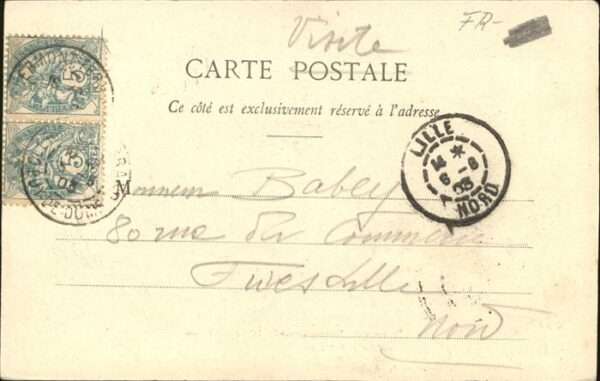 FR-
Visite
CARTE POSTALE
Ce côté est exclusivement réservé à l'adresse
LILLE
NORD
Monsieur Babey
80 rue du Commerce
Fives Lille
Nord